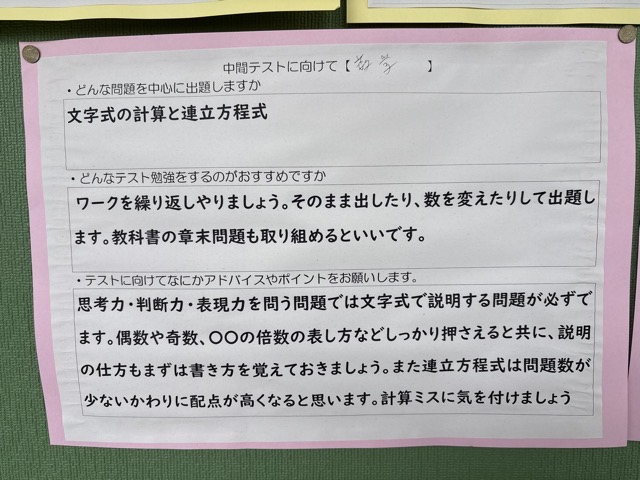 中間テストに向けて【 数学 】
・どんな問題を中心に出題しますか
文字式の計算と連立方程式
・どんなテスト勉強をするのがおすすめですか
ワークを繰り返しやりましょう。そのまま出したり、数を変えたりして出題し
ます。教科書の章末問題も取り組めるといいです。
・テストに向けてなにかアドバイスやポイントをお願いします。
思考力・判断力・表現力を問う問題では文字式で説明する問題が必ずで
ます。偶数や奇数、〇〇の倍数の表し方などしっかり押さえると共に、説明
の仕方もまずは書き方を覚えておきましょう。また連立方程式は問題数が
少ないかわりに配点が高くなると思います。計算ミスに気を付けましょう